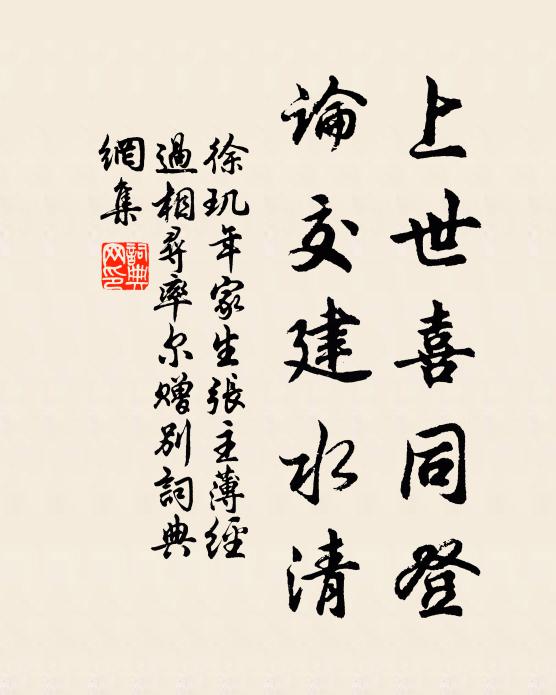 上世喜同登
論交建水清
徐玑年家生張主薄經
過相尋率尔贈别詞典
網集
詞典
网印